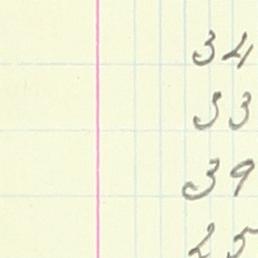 34
33
39
25